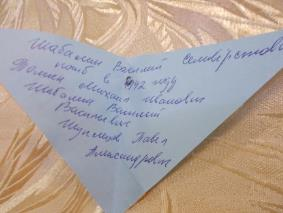 Шабалин Василий Селиверстович
погиб в 1942 году
Михаил Иванович
Шабалин Василий
Васильевич
Павел
Александрович